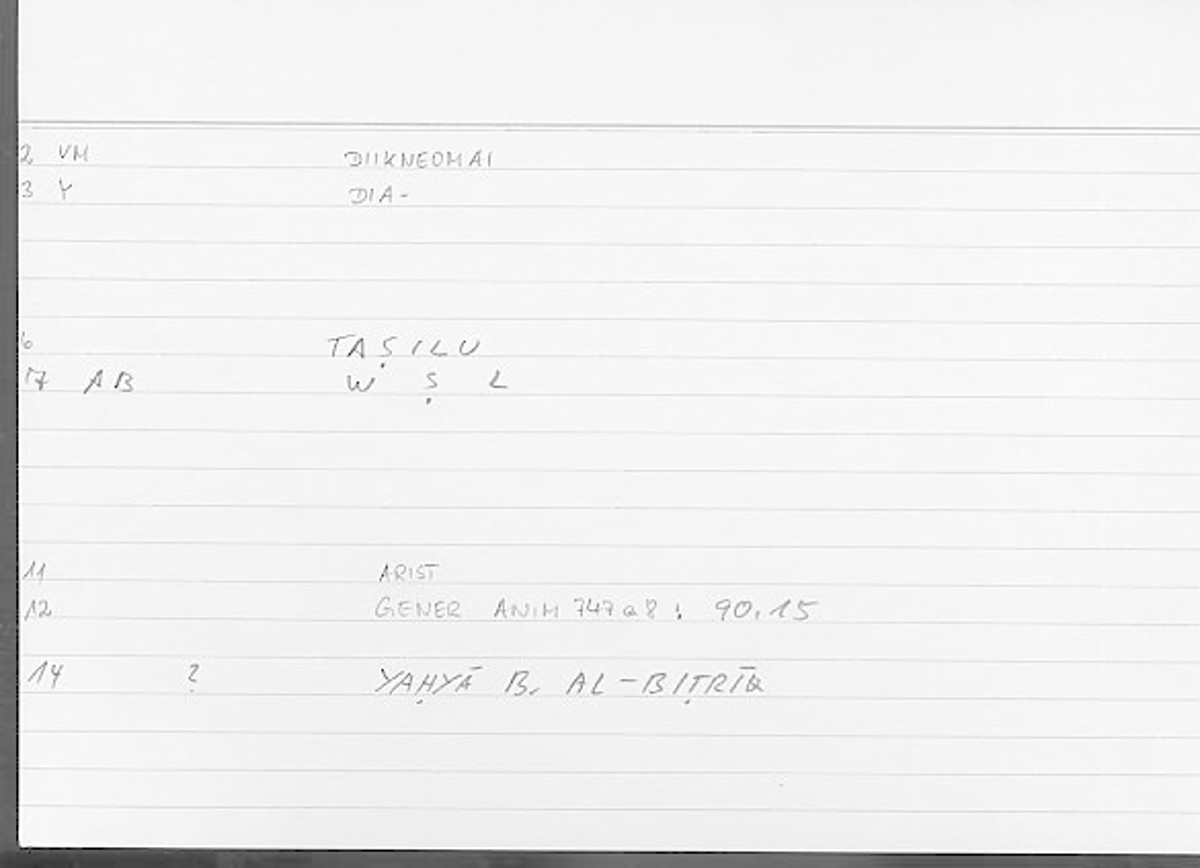 2 VM DIIKNEOMAI
3 Y DIA-
6 TAṢILU
17 AB W Ṣ L
11 ARIST
12 GENER ANIM 747a8 : 90.15
14 ? YAḤYĀ B. AL-BIṬRĪQ